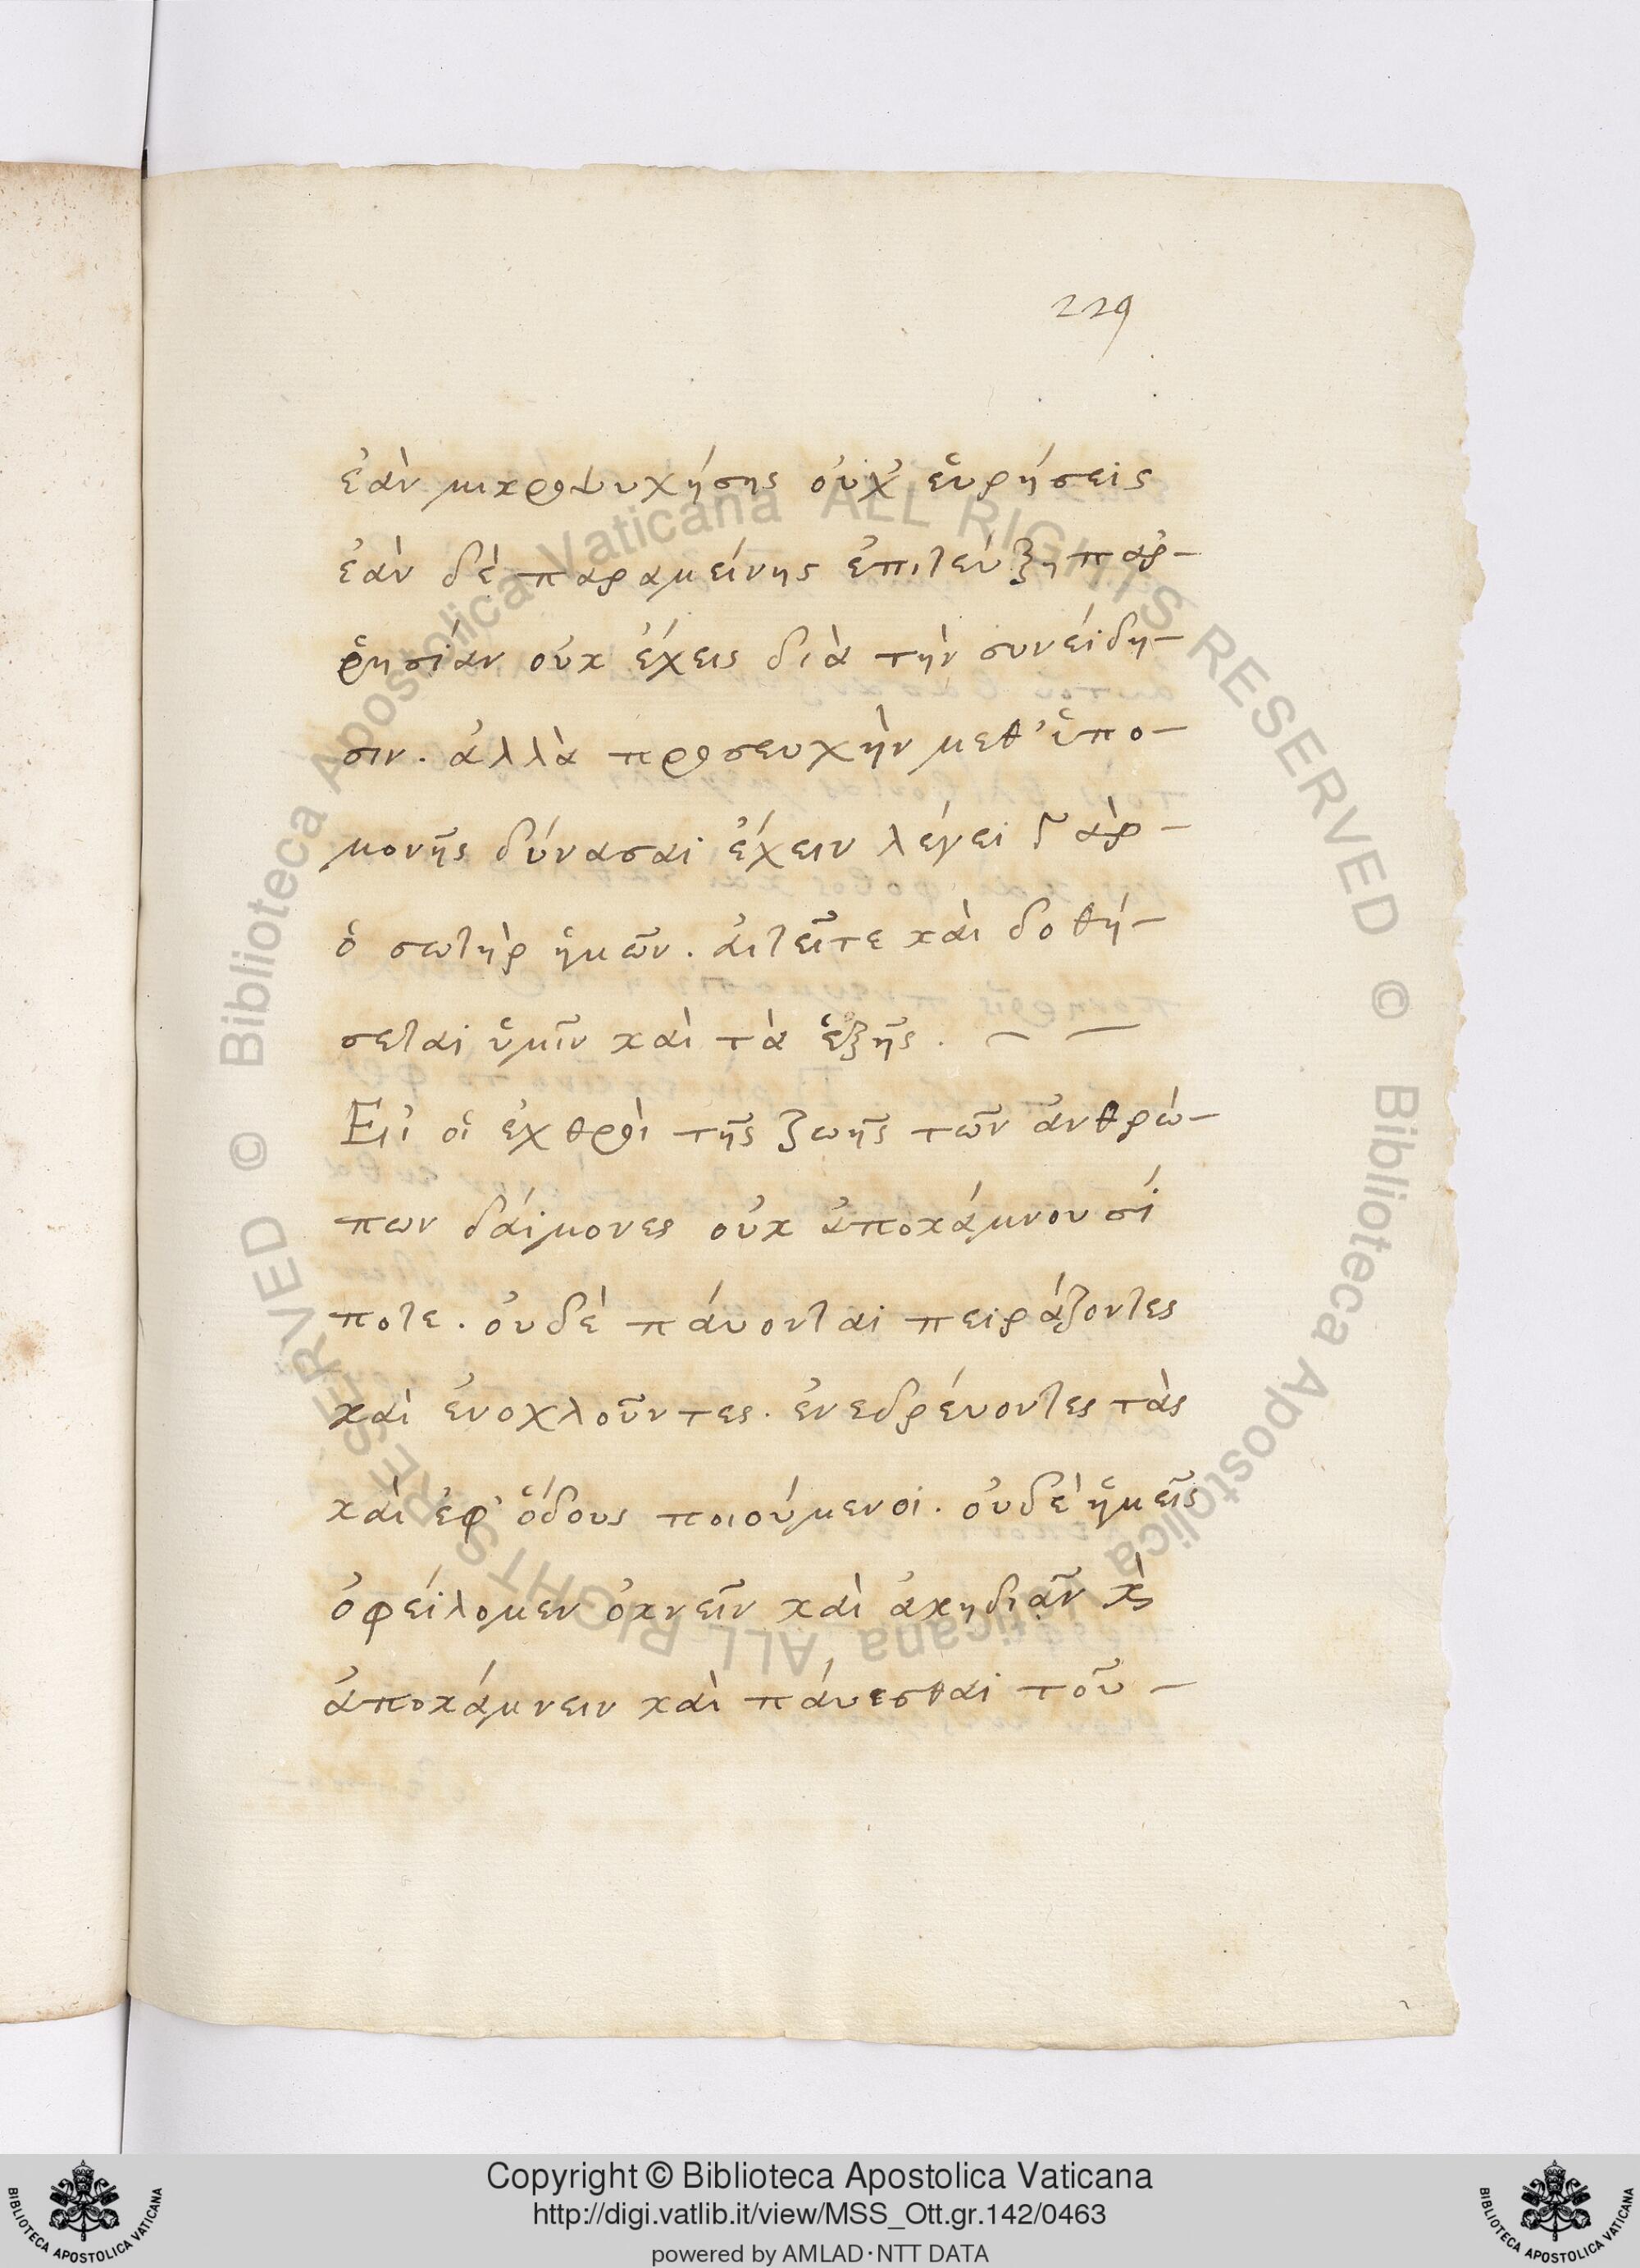 229
ἐὰν μικροψυχήσης οὐχ εὑρήσεις
ἐὰν δὲ παραμείνης ἐπιτεύξη παρ-
ῥησίαν οὐκ ἔχεις διὰ τὴν συνείδη-
σιν. ἀλλὰ προσευχὴν μεθ' ὑπο-
μονῆς δύνασαι ἔχειν λέγει γὰρ-
ὁ σωτὴρ ἡμῶν. αἰτεῖτε καὶ δοθή-
σεται ὑμῖν καὶ τὰ ἑξῆς. — —
Εἰ οἱ ἐχθροὶ τῆς ζωῆς τῶν ἀνθρώ-
πων δαίμονες οὐκ ἀποκάμνουσί
ποτε. οὐδὲ παύονται πειράζοντες
καὶ ἐνοχλοῦντες. ἐνεδρεύοντες τὰς
καὶ ἐφ' ὅδους ποιούμενοι. οὐδὲ ἡμεῖς
ὀφείλομεν ὀκνεῖν καὶ ἀκηδιᾶν κὶ
ἀποκάμνειν καὶ παύεσθαι τοῦ-
© Biblioteca Apostolica Vaticana ALL RIGHTS RESERVED
© Biblioteca Apostolica Vaticana ALL RIGHTS RESERVED
BIBLIOTECA APOSTOLICA VATICANA
Copyright © Biblioteca Apostolica Vaticana
http://digi.vatlib.it/view/MSS_Ott.gr.142/0463
powered by AMLAD·NTT DATA
BIBLIOTECA APOSTOLICA VATICANA